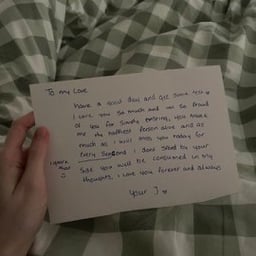 To my Love
have a good day and get some rest
I Love you so much and im so proud
of you for simply existing, you make
me the happiest person alive and as
much as I will miss you today for
every second I dont spend by your
side you will be consumed in my
thoughts, I Love you forever and always
Your J